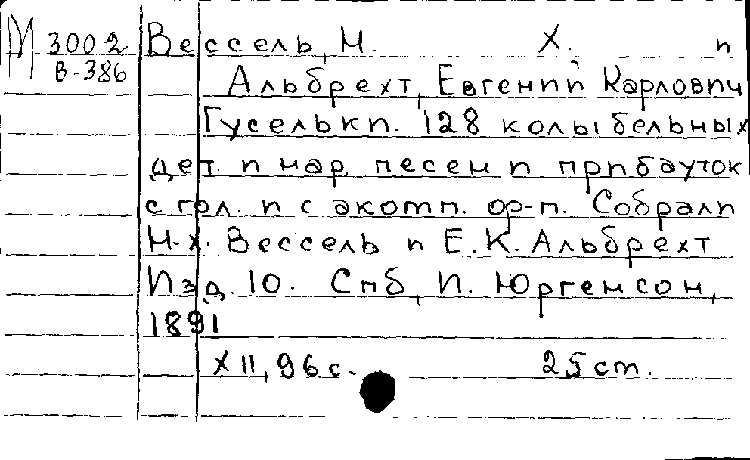 М 3002 Вессель, Н. Х. и
В-386 Альбрехт, Евгений Карлович
Гусельки. 128 колыбельных
дет. и нар. песен и прибауток
с гол. и с акомп. ф-п. Собрали
Н.Х. Вессель и Е.К. Альбрехт
Изд. 10. Спб, П. Юргенсон,
1891
XII, 96 с. 25 cm.